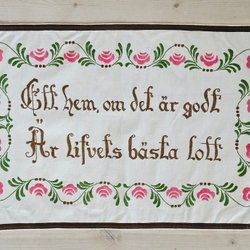 Ett hem, om det är godt
Är lifvets bästa lott